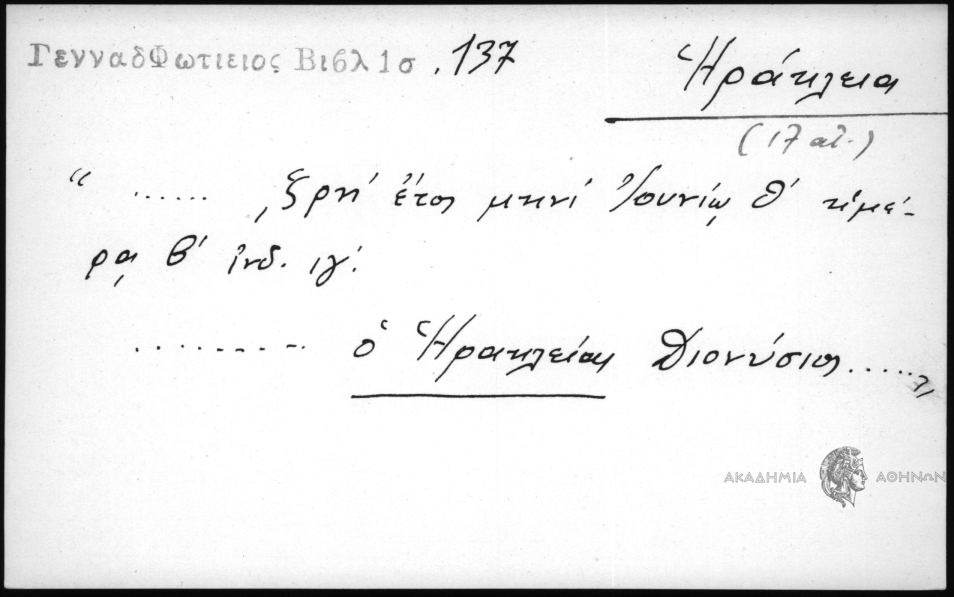 ΓενναδΦωτιειος Βιβλ 1σ. 137
Ἡράκλεια
(17 αἰ.)
“ ...... ͵ζρνη΄ ἔτος μηνὶ Ἰουνίῳ θ΄ ἡμέ-
ρᾳ β΄ ἰνδ. ιγ΄.
......... ὁ Ἡρακλείας Διονύσιος .....”
ΑΚΑΔΗΜΙΑ ΑΘΗΝΩΝ